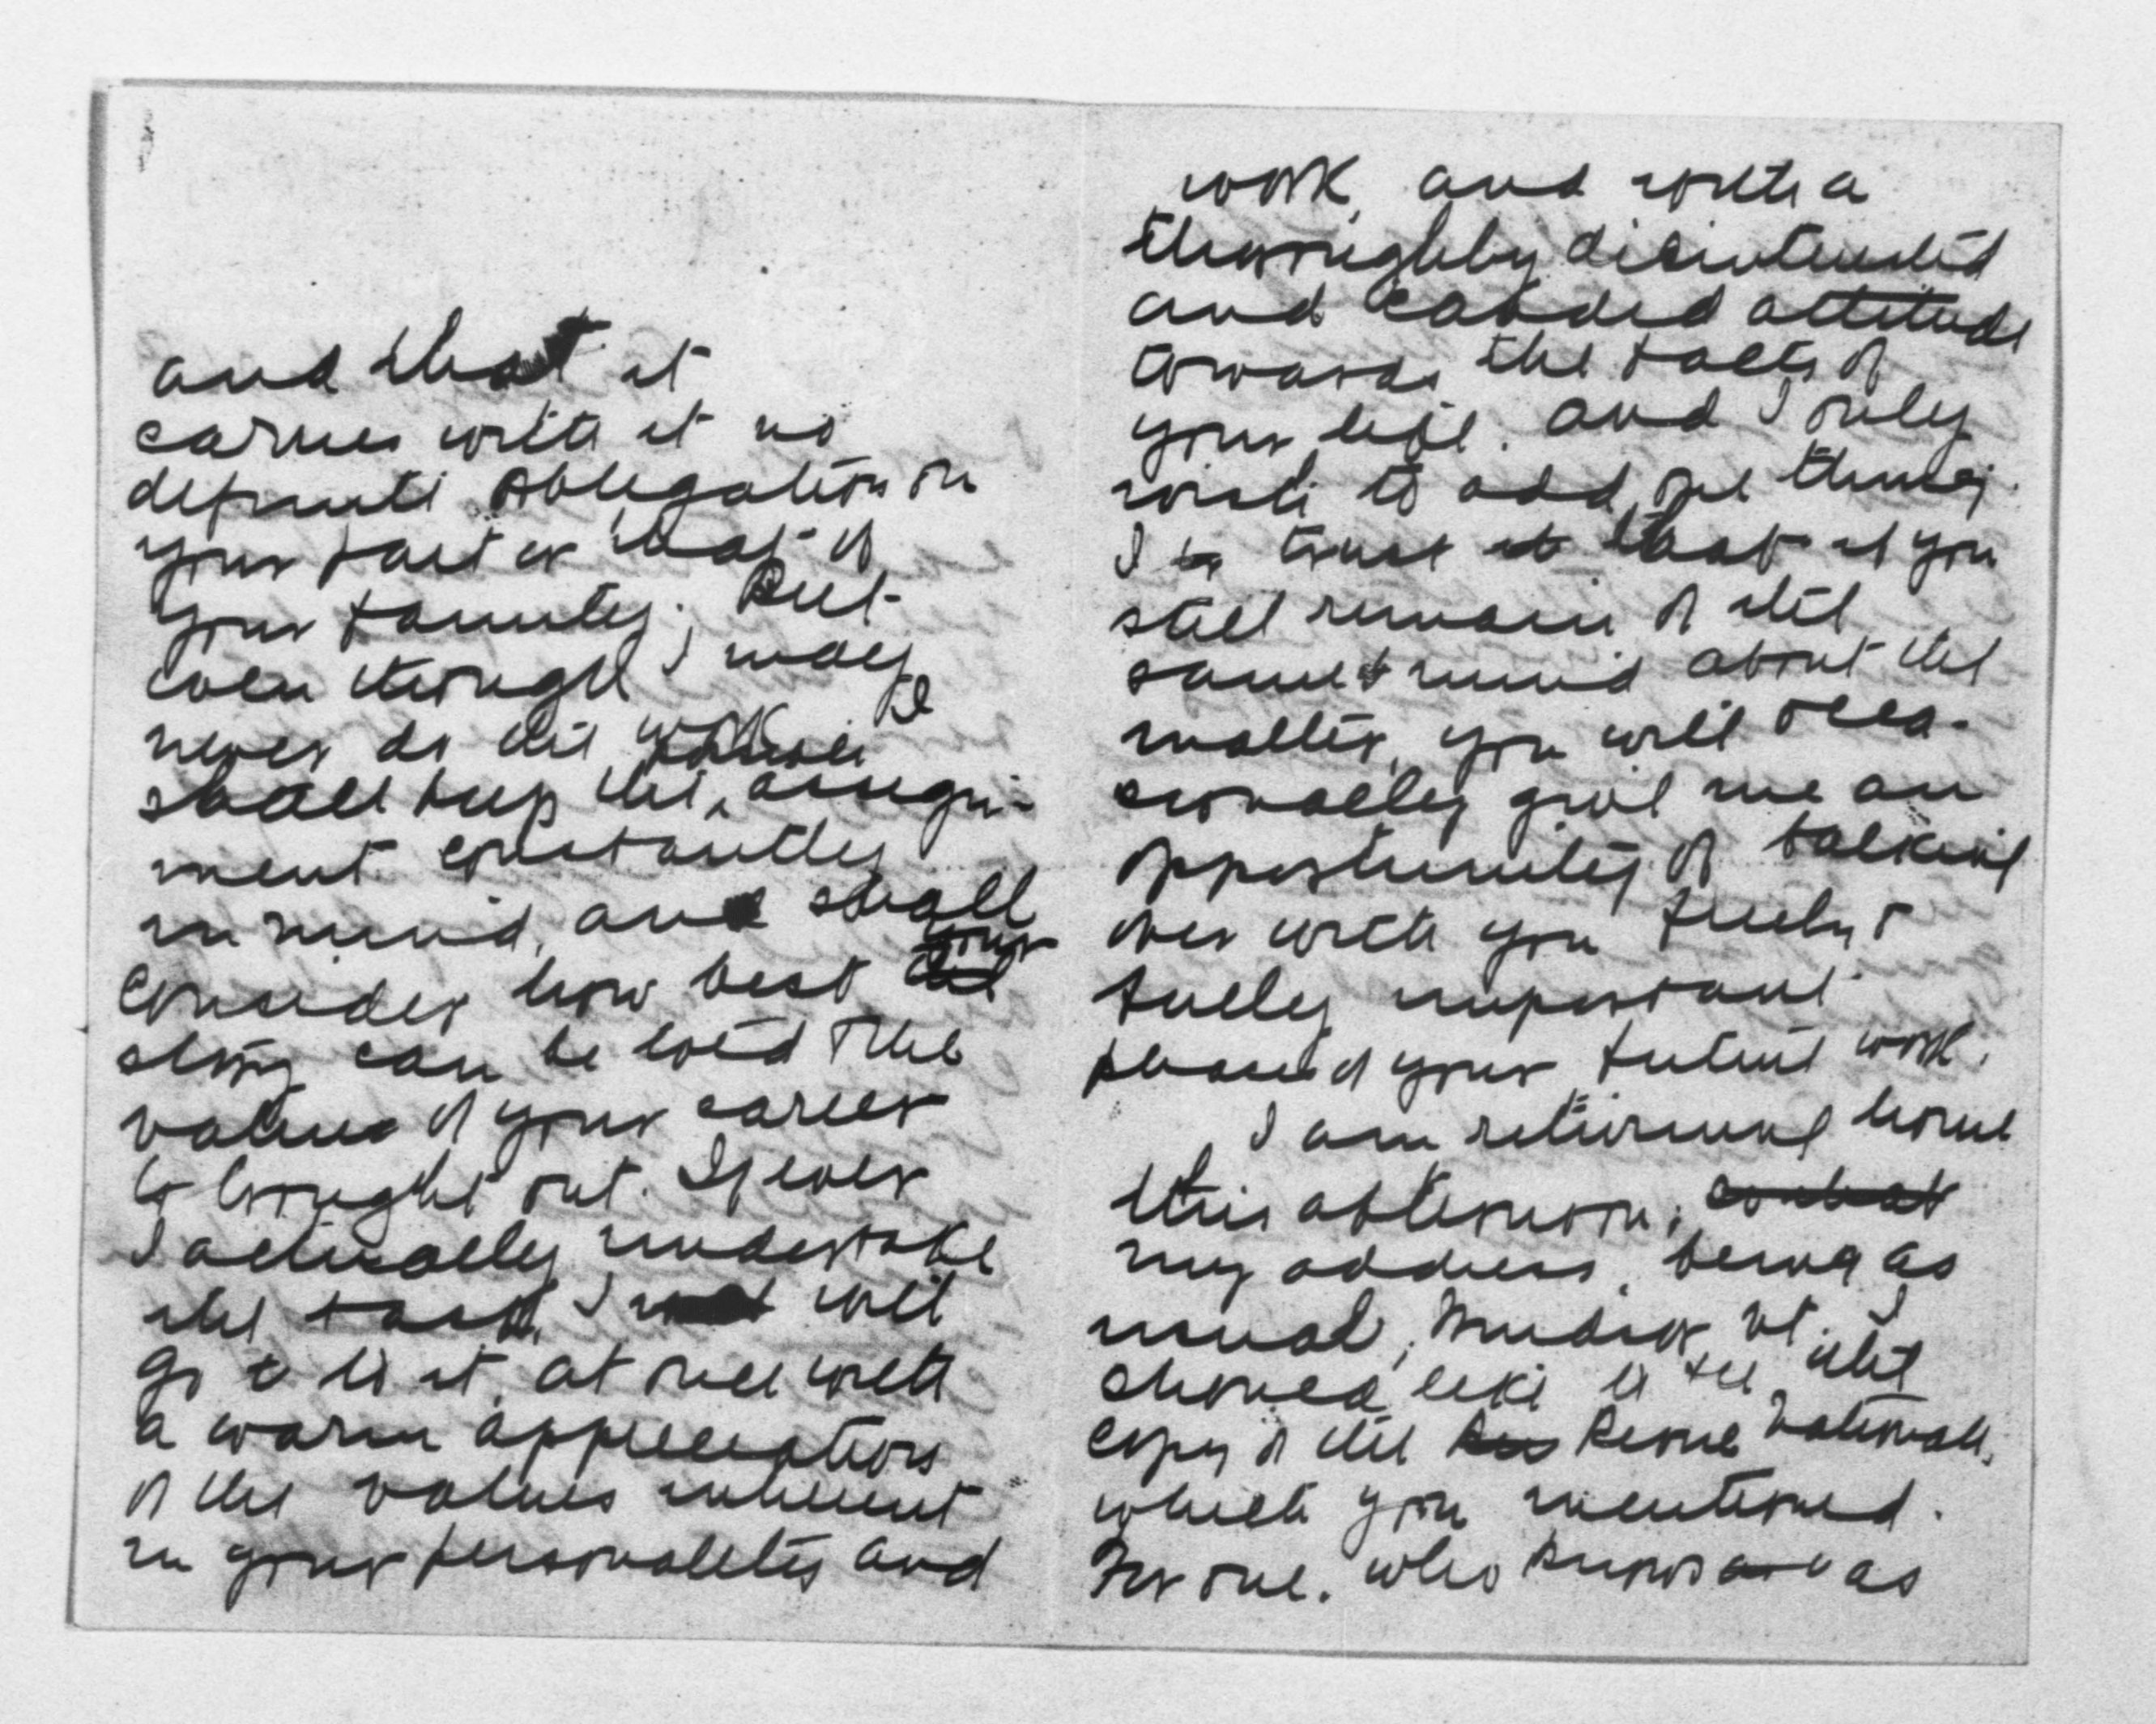 and that it
carries with it no
definite obligation on
your part or that of
your family. But
even though I may
never do the work I
shall keep the assign-
ment constantly
in mind, and shall
consider how best the your
story can be told & the
values of your career
be brought out. If ever
I actually undertake
the task, I will
go to it at once with
a warm appreciation
of the values inherent
in your personality and
work, and with a
thoroughly disinterested
and candid attitude
towards the facts of
your life. And I only
wish to add one thing.
I trust that if you
still remain of the
same mind about the
matter, you will occa-
sionally give me an
opportunity of talking
over with you freely &
fully important
phases of your future work.
I am returning home
this afternoon,
my address, being as
usual, Windsor Vt. I
should like to see the
copy of the Revue Nationale,
which you mentioned.
For one. who knows as